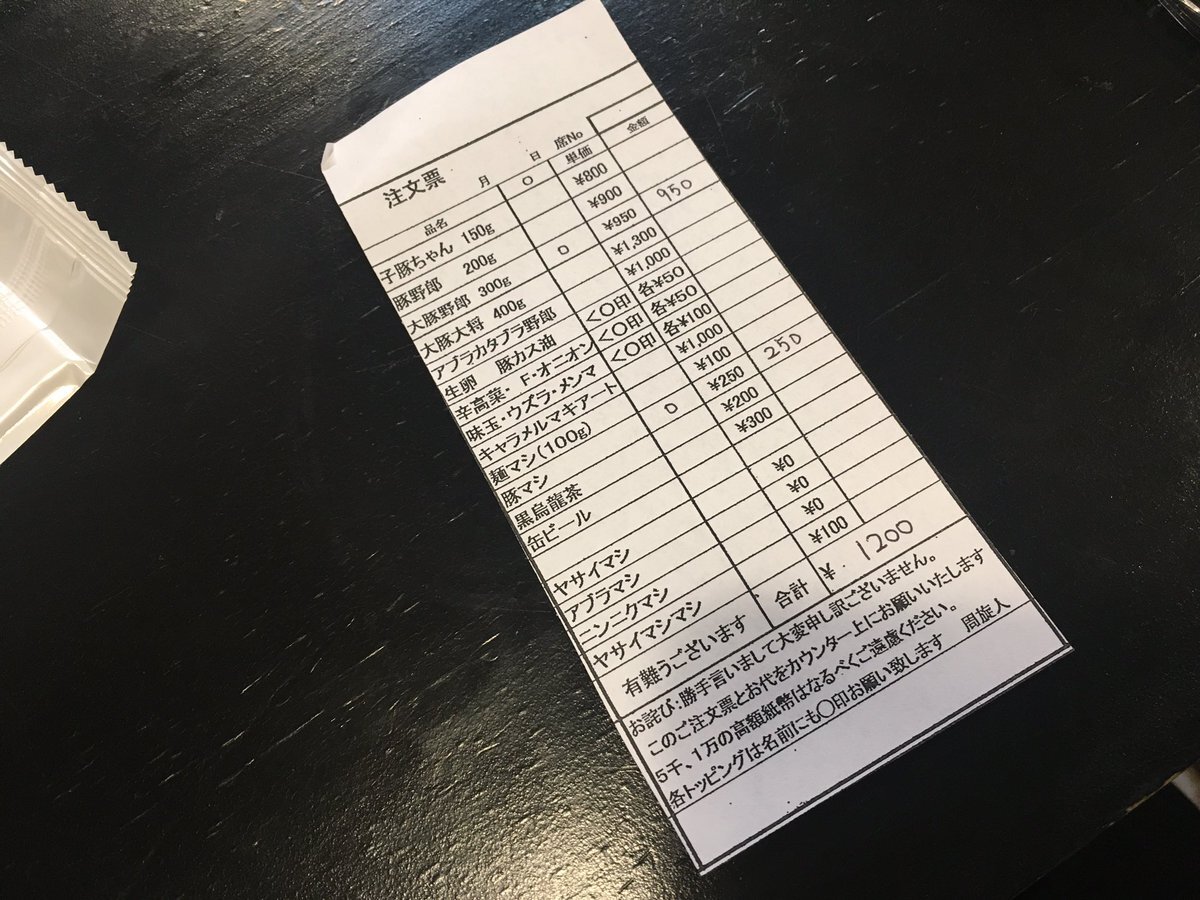 注文票 月 日 席No
品名 ○ 単価 金額
子豚ちゃん 150g ¥800
豚野郎 200g ¥900
大豚野郎 300g ○ ¥950 950
大豚大将 400g ¥1,300
アブラカタブラ野郎 ¥1,000
生卵 豚カス油 <○印 各¥50
辛高菜・F・オニオン <○印 各¥50
味玉・ウズラ・メンマ <○印 各¥100
キャラメルマキアート ¥1,000
麺マシ(100g) ¥100
豚マシ ○ ¥250 250
黒烏龍茶 ¥200
缶ビール ¥300
ヤサイマシ ¥0
アブラマシ ¥0
ニンニクマシ ¥0
ヤサイマシマシ ¥100
有難うございます 合計 ¥ 1200
お詫び:勝手言いまして大変申し訳ございません。
このご注文票とお代をカウンター上にお願いいたします
5千、1万の高額紙幣はなるべくご遠慮ください。
各トッピングは名前にも○印お願い致します 周旋人